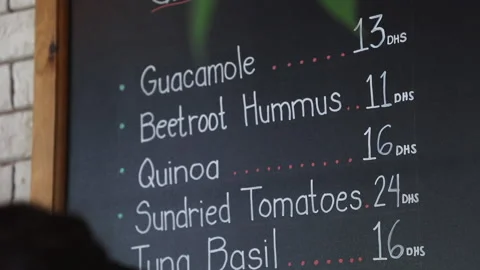 • Guacamole ...... 13 DHS
• Beetroot Hummus .. 11 DHS
• Quinoa ........... 16 DHS
• Sundried Tomatoes . 24 DHS
Tuna Basil ....... 16 DHS